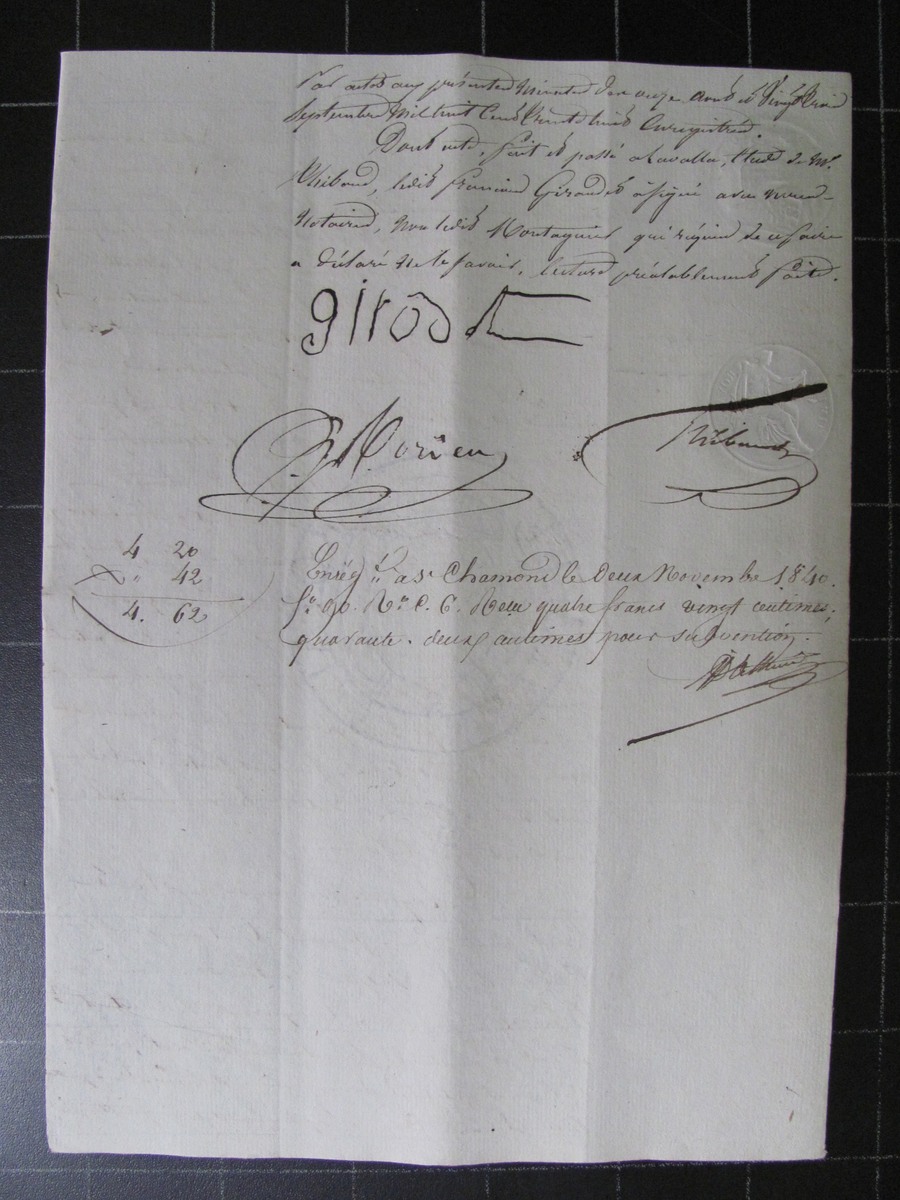 Par acte aux présentes minutes d'en onze avril et Vingt trois
Septembre Mil huit Cent trente huit Enregistrés.
Dont acte, fait et passé a Lavalla, Etude de Me.
Thibaud, ledit François Giraudet a signé avec
Notaires, non ledit Montagnier qui requis de ce faire
a déclaré ne le savoir, lecture préalablement faite.
girodet
Morieu
Thibaud
4 20
" 42
4. 62
Enreg.tré a St Chamond le Deux Novembre 1840.
fo. 90. Ro. C. 6. Reçu quatre francs vingt centimes,
quarante-deux centimes pour subvention.